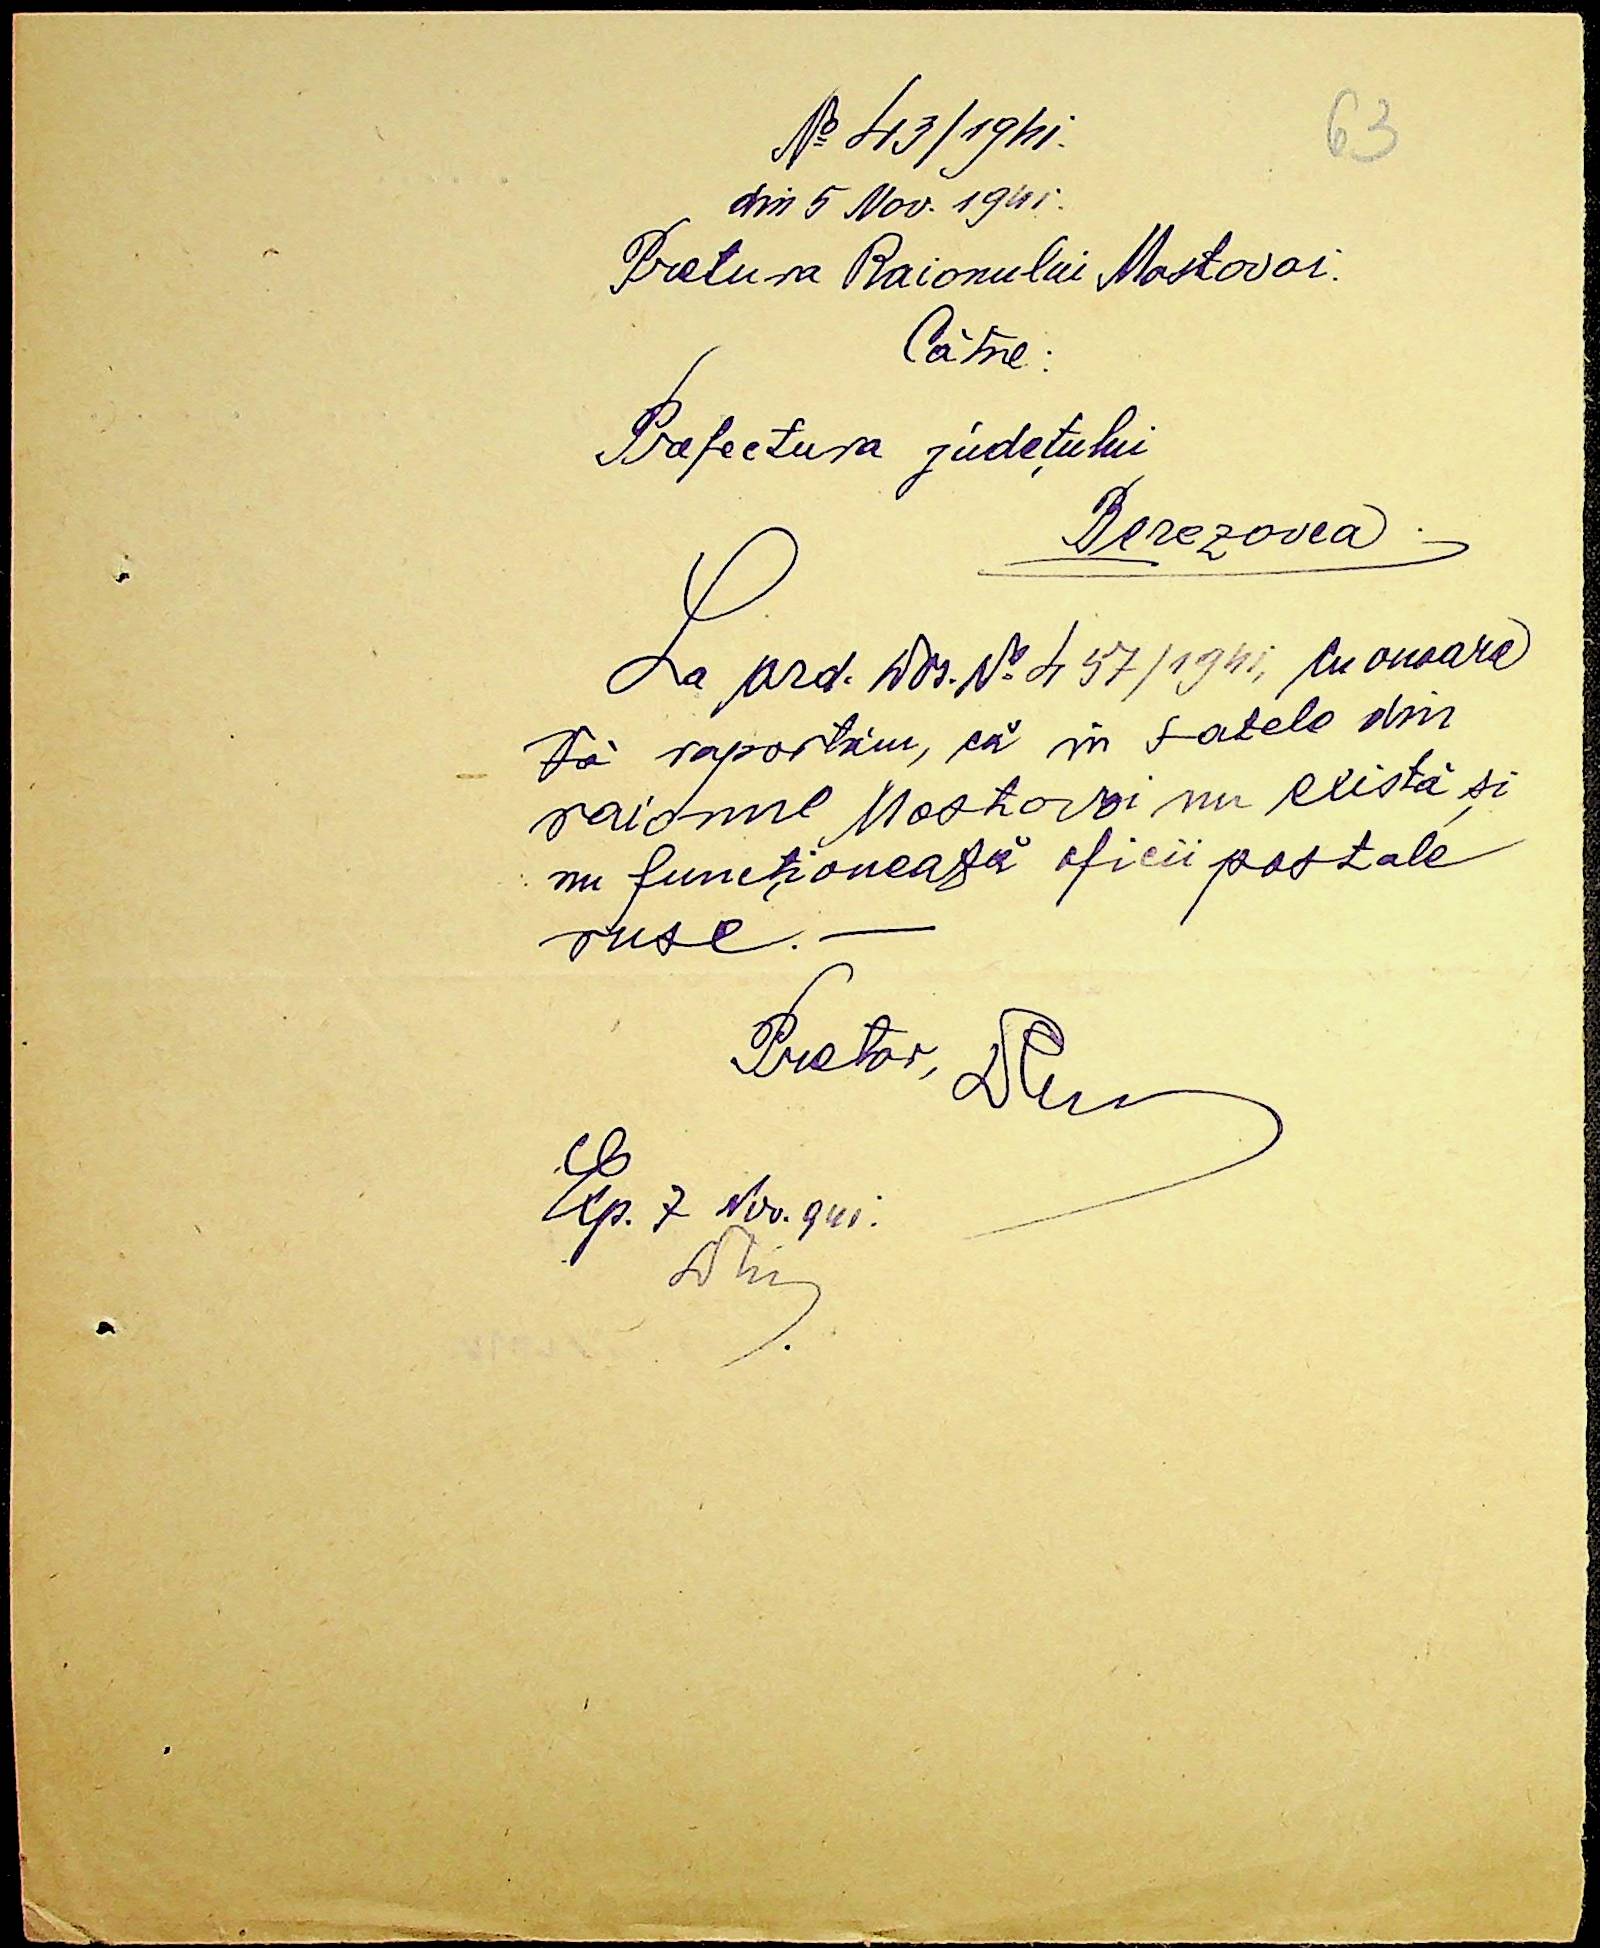 63
№ 43/1941.
din 5 Nov. 1941.
Pretura Raionului Mostovoi.
Către:
Prefectura județului
Berezovca
La ord. Dvs. № 457/1941, cu onoare
Vă raportăm, că in satele din
raionul Mostovoi nu există și
nu funcționează oficii postale
ruse. —
Pretor,
Exp. 7 Nov. 941.